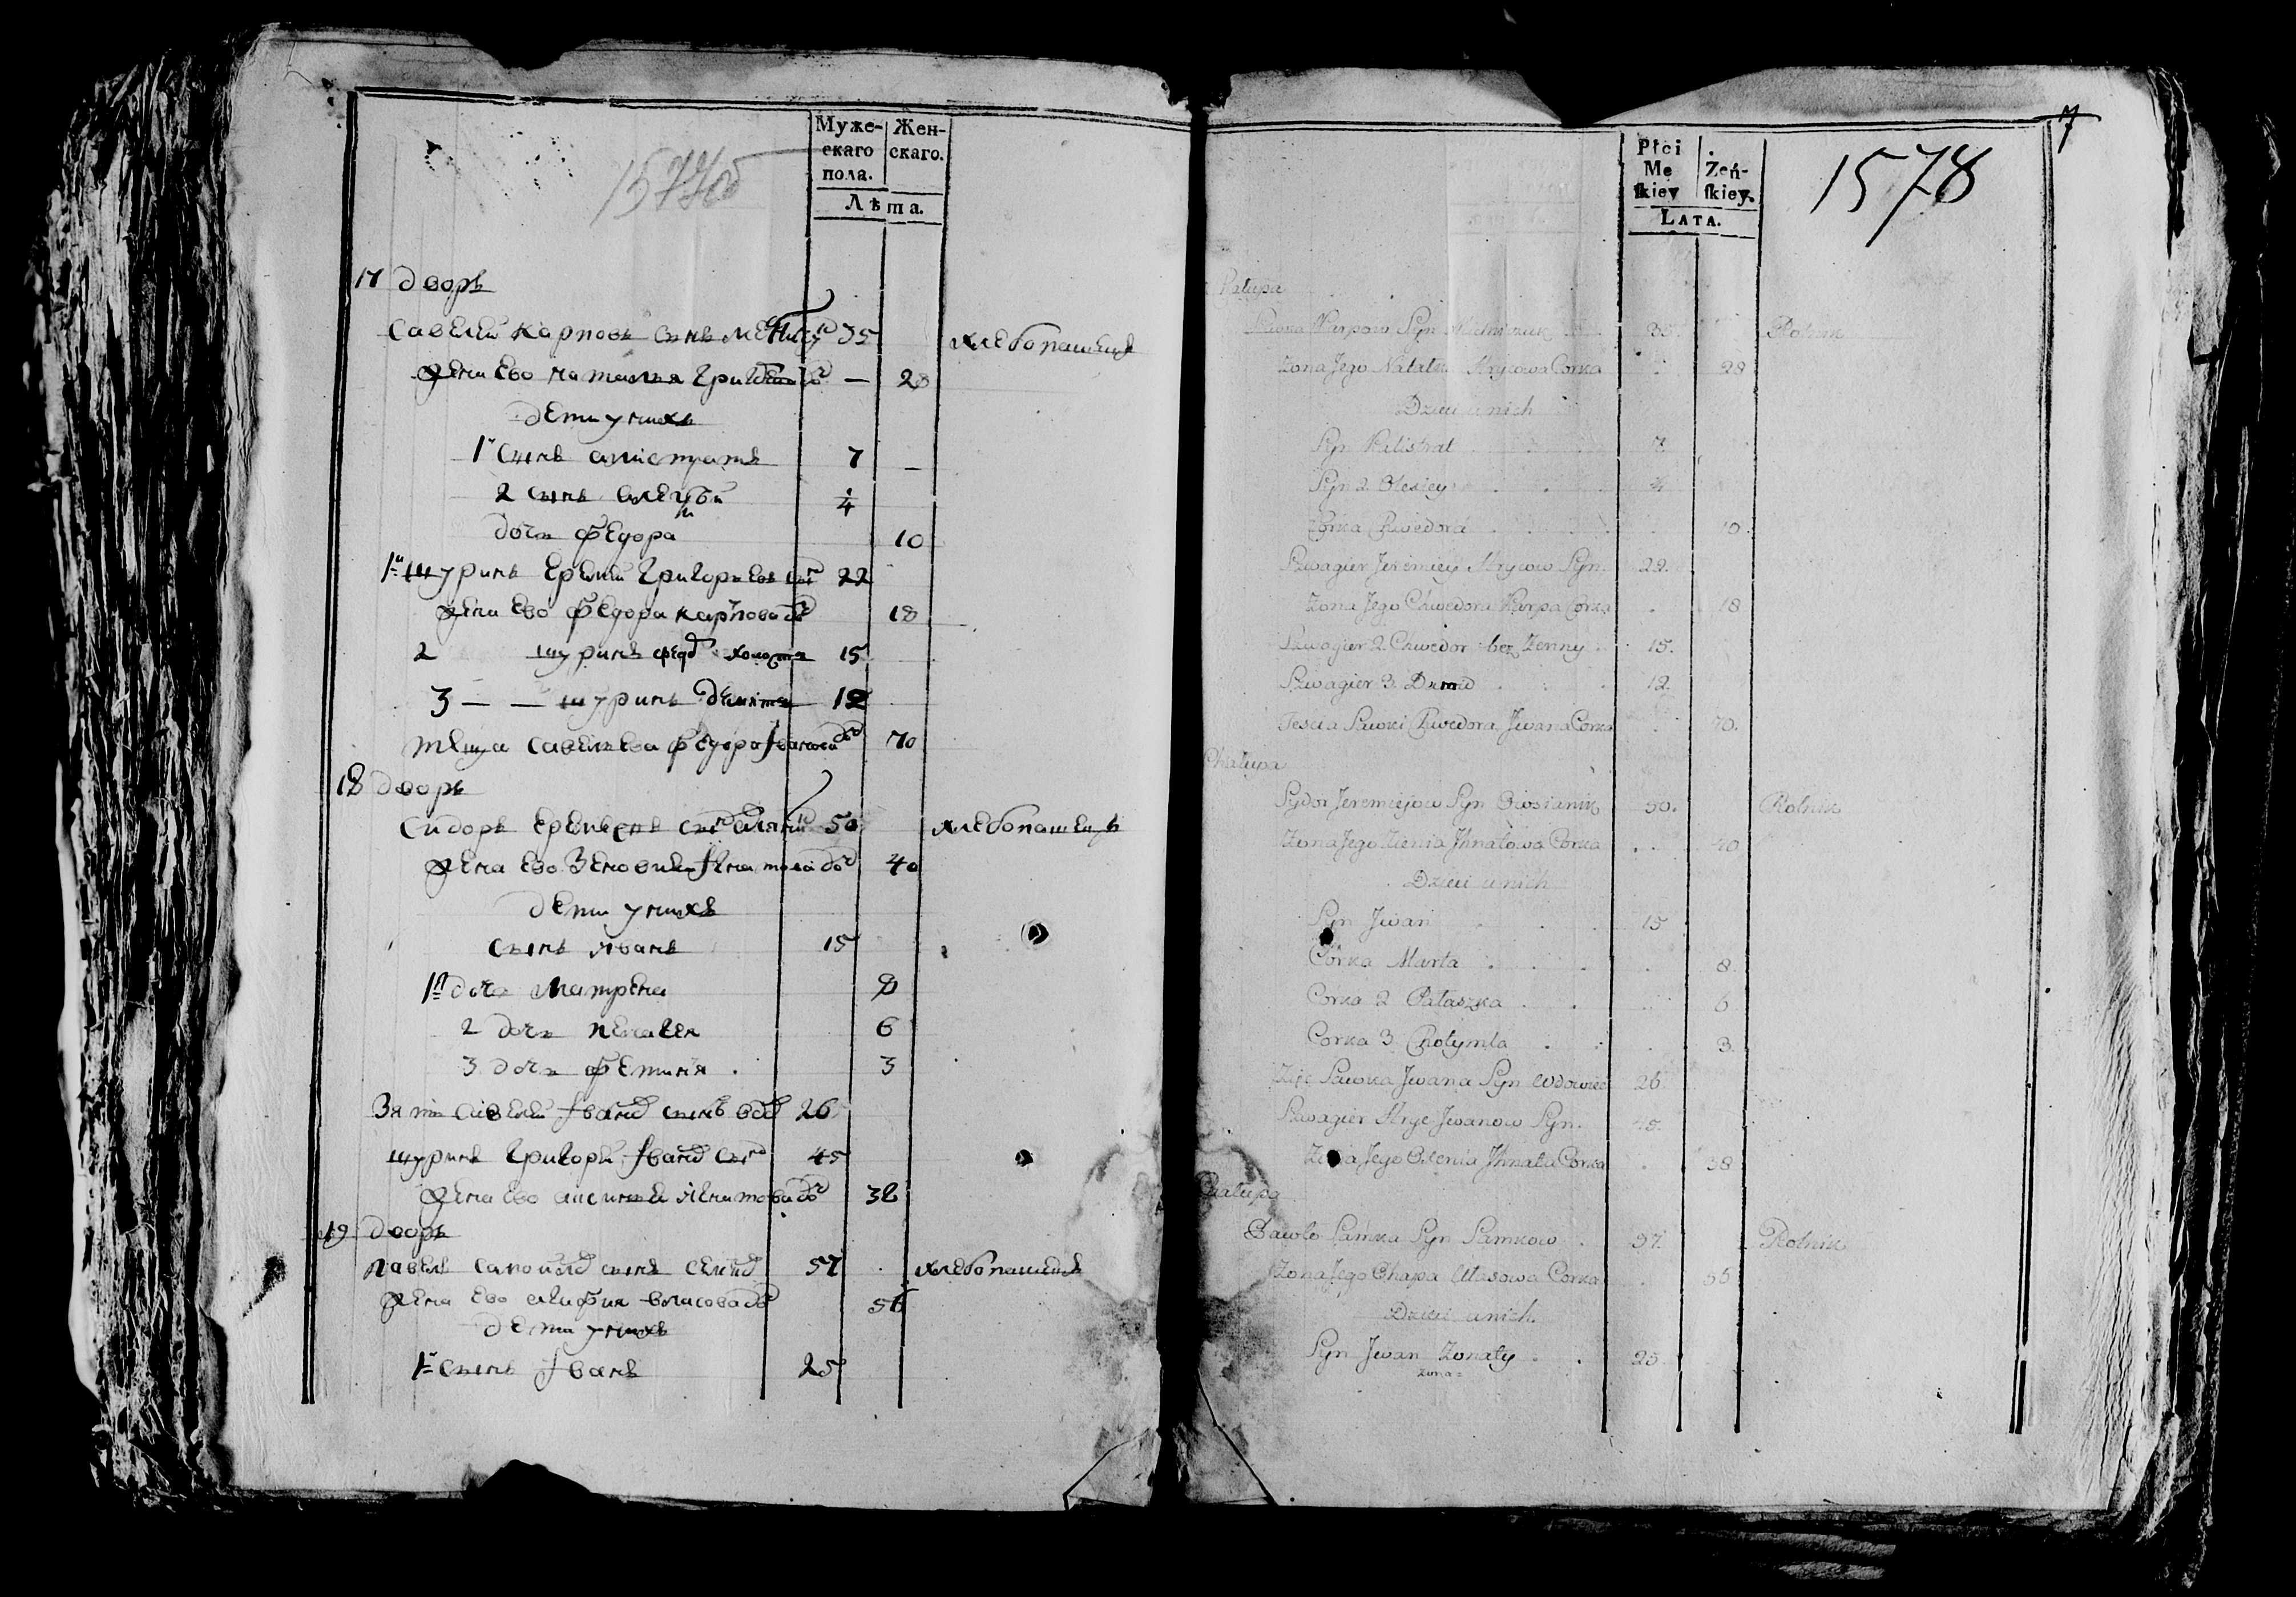 1577об
Муже-
скаго
пола.
Жен-
скаго.
Лѣта.
17 дворъ
Савелий Карповъ сынъ 35 хлебопашецъ
жена ево Наталья — 28
дети у нихъ
1й сынъ 7 —
2 сынъ Алексѣй ¼
дочь Федора 10
1й шуринъ Еремий Григорьевъ сынъ 22
жена ево Федора Карпова доч 18
2 шуринъ Фед холостъ 15
3 — — шуринъ 12
теща Савельева Федора Иванова доч 70
18 дворъ
Сидоръ сын 50 хлебопашецъ
жена ево Зеновия Игнатова доч 40
дети у нихъ
сынъ Иванъ 15
1я дочь Матрена 8
2 дочь Пелагея 6
3 дочь Фетиня 3
Зять Савелий Иванов сынъ вдов 26
шуринъ Григорий Иванов сын 45
жена ево Игнатова доч 38
19 дворъ
Павелъ сынъ 57 хлебопашецъ
жена ево Власова доч 56
дети у нихъ
1й сынъ Иванъ 25
7
Płci
Mę
skiey
Żeń-
skiey.
LATA.
1578
Chałupa
Sawka Karpow Syn 35. Rolnik
Zona Jego Natalka Hrycowa Corka 28
Dzieci u nich
Syn Kalistrat 7
Syn 2 Olexiey ¼
Corka Chwedora 10.
Szwagier Jeremiey Hrycow Syn. 22.
Zona Jego Chwedora Karpa Corka 18
Szwagier 2 Chwedor bez Zenny 15.
Szwagier 3. 12.
Tescia Sawki Chwedora Jwana Corka 70.
Chałupa
Sydor Jeremiejow Syn 50. Rolnik
Zona Jego Zienia Jhnatowa Corka 40
Dzieci u nich
Syn Jwan 15
Corka Marta 8.
Corka 2 Pałaszka 6
Corka 3 3.
Zięć Sawka Jwana Syn Wdowiec 26.
Szwagier Hryc Jwanow Syn. 45.
Zona Jego Jhnata Corka 38
Chałupa
Pawło Syn 57. Rolnik
Zona Jego Ułasowa Corka 56
Dzieci u nich.
Syn Jwan Zonaty 25.
zona